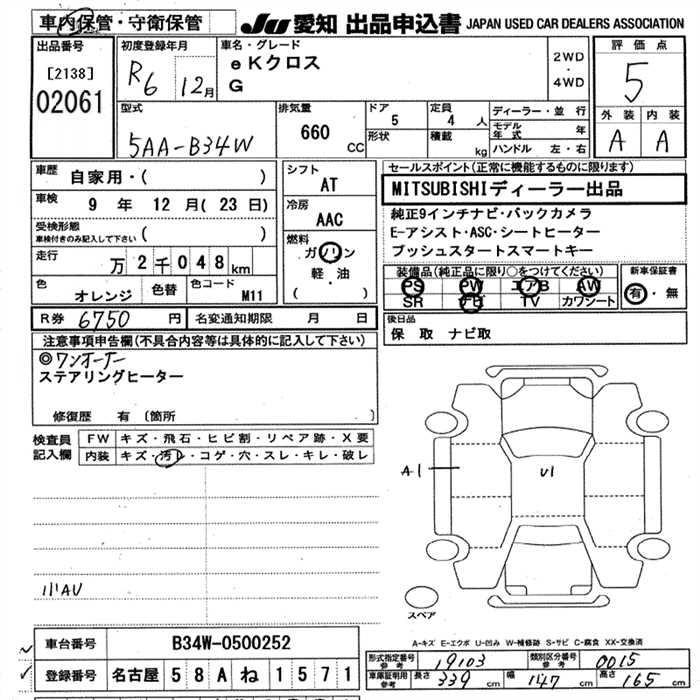 車内保管・守衛保管 JU 愛知 出品申込書 JAPAN USED CAR DEALERS ASSOCIATION
出品番号 初度登録年月 車名・グレード 評価点
[2138] R6 12月 eKクロス 2WD・4WD 5
02061 G
型式 排気量 ドア 定員 ディーラー・並行 外装 内装
5AA-B34W 660 CC 5 4 人 モデル年式 年 A A
形状 積載 kg ハンドル 左・右
車歴 自家用・( ) シフト AT セールスポイント(正常に機能するものに限ります)
車検 9 年 12 月( 23 日) 冷房 AAC MITSUBISHIディーラー出品
受検形態 車検付きのみ記入して下さい ( ) 純正9インチナビ・バックカメラ
燃料 ガソリン E-アシスト・ASC・シートヒーター
走行 万 2 千 0 4 8 km 軽・油 ブッシュスタートスマートキー
色 オレンジ 色替 色コード M11 ( )
装備品(純正品に限り○をつけてください) 新車保証書
PS PW エアB AW 有・無
SR ナビ TV カワシート
R券 6750 円 名変通知期限 月 日 後日品
保 取 ナビ取
注意事項申告欄(不具合内容等は具体的に記入して下さい)
◎ワンオーナー
ステアリングヒーター
修復歴 有 〔箇所
検査員記入欄 FW キズ・飛石・ヒビ割・リペア跡・X要
内装 キズ・汚レ・コゲ・穴・スレ・キレ・破レ
A1 U1
スペア
A-キズ E-エクボ U-凹み W-補修跡 S-サビ C-腐食 XX-交換済
車台番号 B34W-0500252
登録番号 名古屋 5 8 A ね 1 5 7 1
形式指定番号 参考 19103 類別区分番号 参考 0015
車庫証明用 参考 長さ 339 cm 幅 147 cm 高さ 165 cm